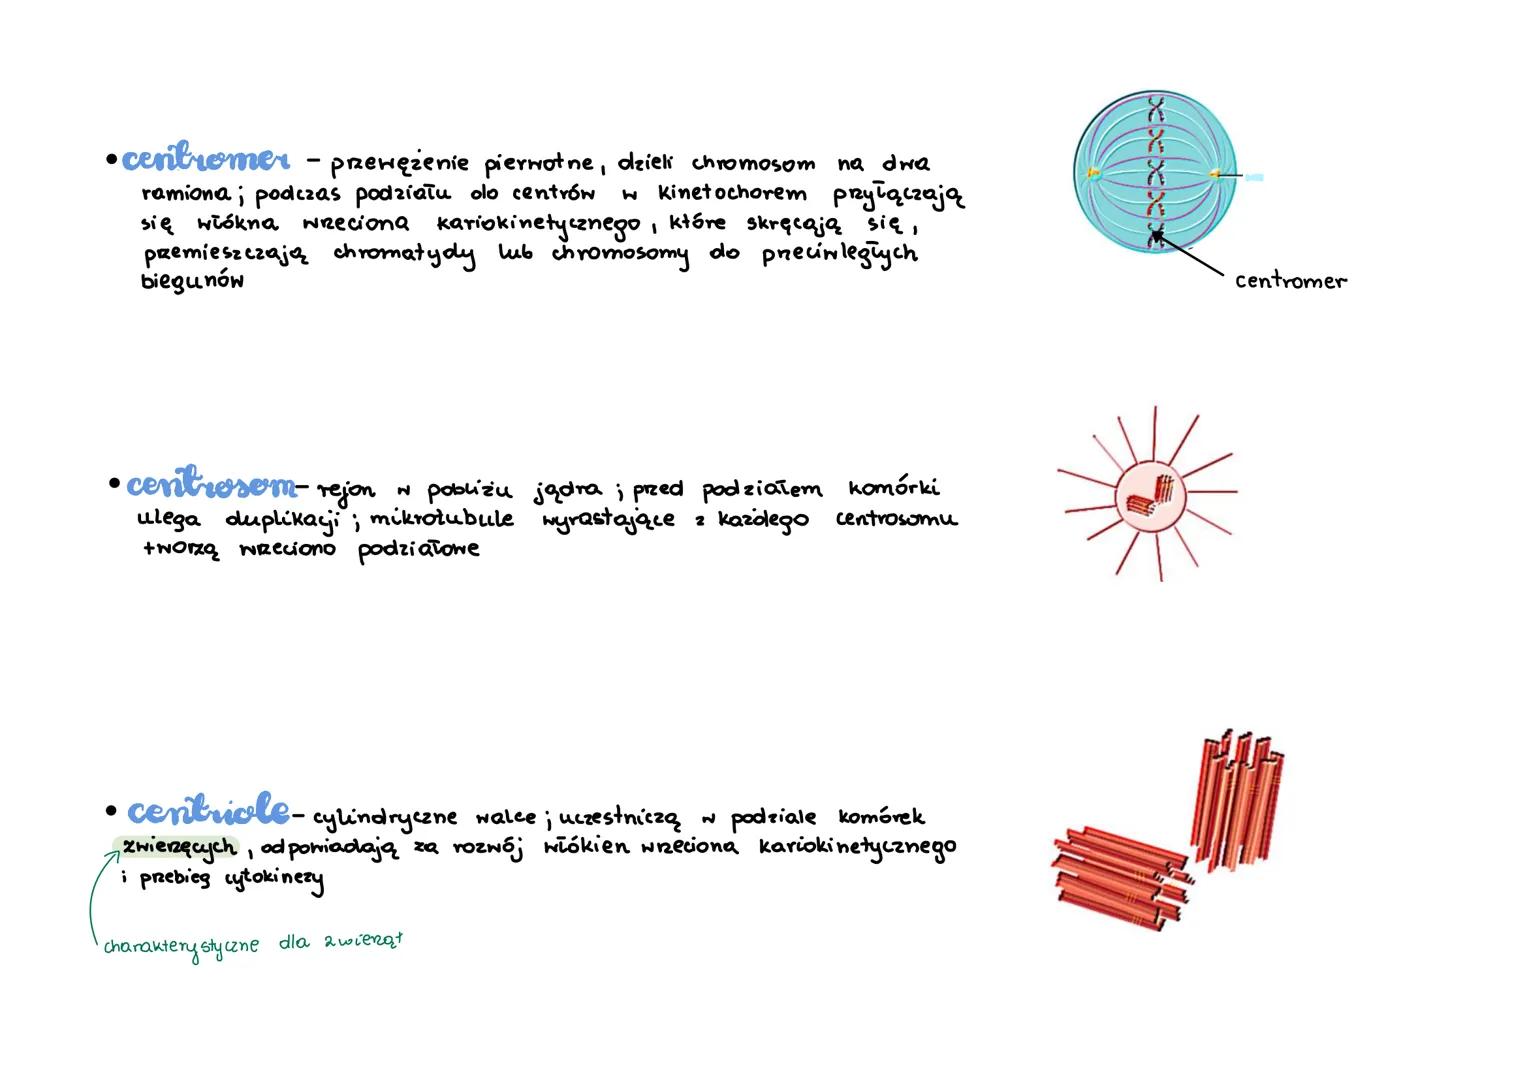 • centromer – przewężenie pierwotne, dzieli chromosom na dwa
ramiona; podczas podziału do centrów w kinetochorem przyłączają
się włókna wrzeciona kariokinetycznego, które skręcają się,
przemieszczają chromatydy lub chromosomy do przeciwległych
biegunów
centromer
• centrosom – rejon w pobliżu jądra; przed podziałem komórki
ulega duplikacji; mikrotubule wyrastające z każdego centrosomu
tworzą wrzeciono podziałowe
• centriole – cylindryczne walce; uczestniczą w podziale komórek
zwierzęcych, odpowiadają za rozwój włókien wrzeciona kariokinetycznego
i przebieg cytokinezy
charakterystyczne dla zwierząt